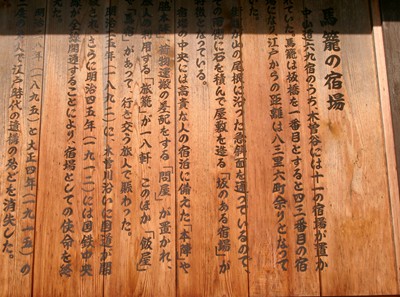 馬籠の宿場
中山道六九宿のうち、木曽谷には十一の宿場が置か
れていた。馬籠は板橋を一番目とすると四三番目の宿
江戸からの距離は八三里六町余りとなって
山の尾根に沿った急斜面を通っているので、
に石を積んで屋敷を造る「坂のある宿場」が
なっている。
の中央には高貴な人の宿泊に備えた「本陣」や
荷物運搬の采配をする「問屋」が置かれ、
利用する「旅籠」が一八軒、このほか「飯屋」
があって、行き交う旅人で賑わった。
明治二五年（一八九二）に木曽川沿いに国道が開
さらに明治四五年（一九一二）には国鉄中央
全線開通することにより、宿場としての使命を終
えた。
（一八九五）と大正四年（一九一五）の
江戸時代の遺構の殆どを消失した。